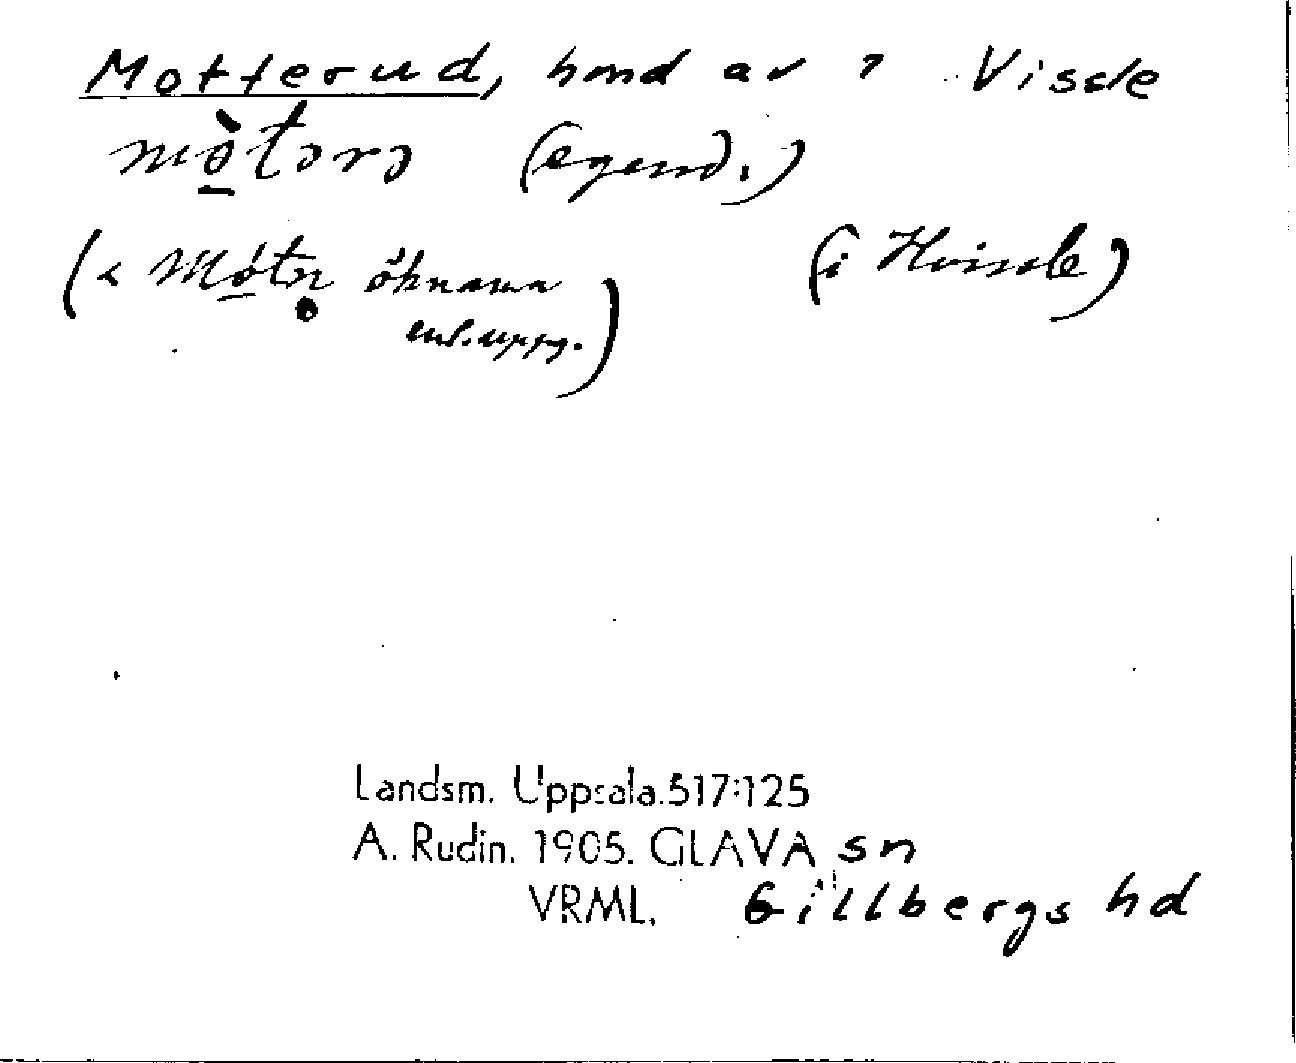 Motterud, hmd av ? Vissle
mòtərə (egend.)
(< Mótn öknamn (i Hvissle)
enl. uppg.)
Landsm. Uppsala. 517:125
A. Rudin. 1905. GLAVA sn
VRML. Gillbergs hd